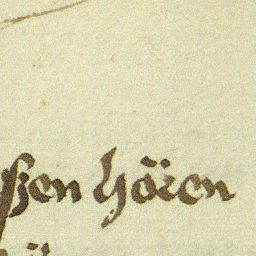 ßen hören